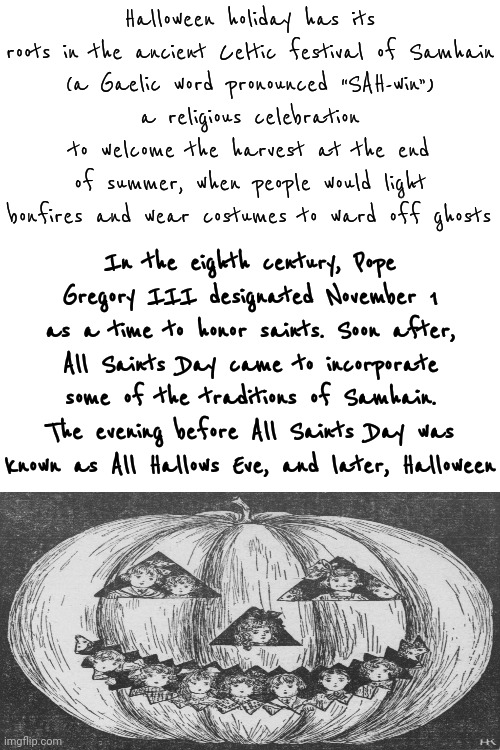 Halloween holiday has its
roots in the ancient Celtic festival of Samhain
(a Gaelic word pronounced “SAH-win”)
a religious celebration
to welcome the harvest at the end
of summer, when people would light
bonfires and wear costumes to ward off ghosts
In the eighth century, Pope
Gregory III designated November 1
as a time to honor saints. Soon after,
All Saints Day came to incorporate
some of the traditions of Samhain.
The evening before All Saints Day was
known as All Hallows Eve, and later, Halloween
HK
imgflip.com